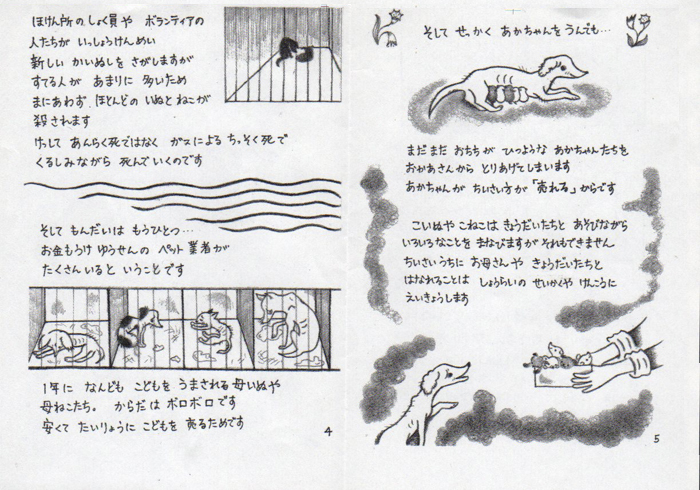 ほけん所のしょく員や ボランティアの
人たちが いっしょうけんめい
新しい かいぬしを さがしますが
すてる人が あまりに 多いため
まにあわず ほとんどの いぬと ねこが
殺されます
けっして あんらく死ではなく ガスによる ちっそく死で
くるしみながら 死んでいくのです
そして もんだいは もうひとつ…
お金もうけ ゆうせんの ペット 業者が
たくさんいると いうことです
1年に なんども こどもを うまされる 母いぬや
母ねこたち。 からだは ボロボロです
安くて たいりょうに こどもを 売るためです
4
そして せっかく あかちゃんを うんでも…
まだまだ おちちが ひつような あかちゃんたちを
おかあさんから とりあげてしまいます
あかちゃんが ちいさい方が 「売れる」からです
こいぬや こねこは きょうだいたちと あそびながら
いろいろなことを まなびますが それもできません
ちいさいうちに お母さんや きょうだいたちと
はなれることは しょうらいの せいかくや けんこうに
えいきょうします
5